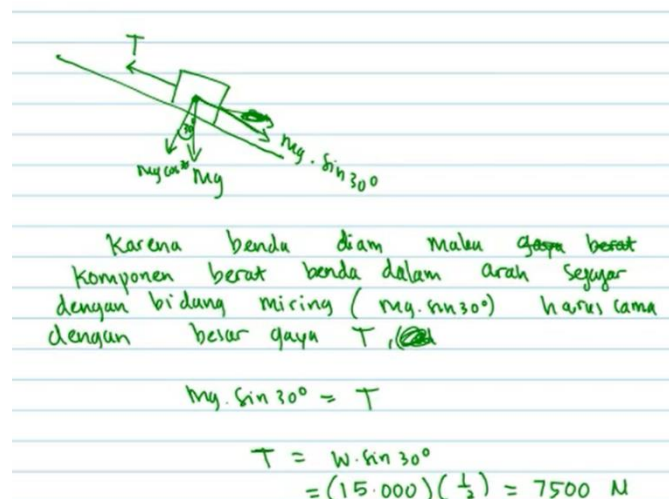 T
30°
mg cos 30
mg
mg . sin 30°
Karena benda diam maka gaya berat
komponen berat benda dalam arah sejajar
dengan bidang miring ( mg. sin 30° ) harus sama
dengan besar gaya T,
mg . sin 30° = T
T = W. sin 30°
= (15.000) (1/2) = 7500 N